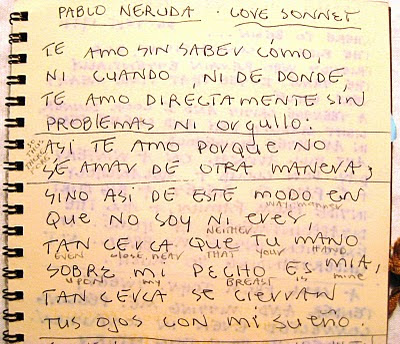 PABLO NERUDA · LOVE SONNET
TE AMO SIN SABER CÓMO,
NI CUANDO, NI DE DONDE,
TE AMO DIRECTAMENTE SIN
PROBLEMAS NI ORGULLO:
ASI TE AMO PORQUE NO
SE AMAR DE OTRA MANERA;
SINO ASI DE ESTE MODO EN
WAY, MANNER
QUE NO SOY NI ERES
NEITHER
TAN CERCA QUE TU MANO
EVEN close, near THAT your HAND
SOBRE MI PECHO ES MIA,
UPON my BREAST is mine
TAN CERCA SE CIERRAN
TUS OJOS CON MI SUEÑO